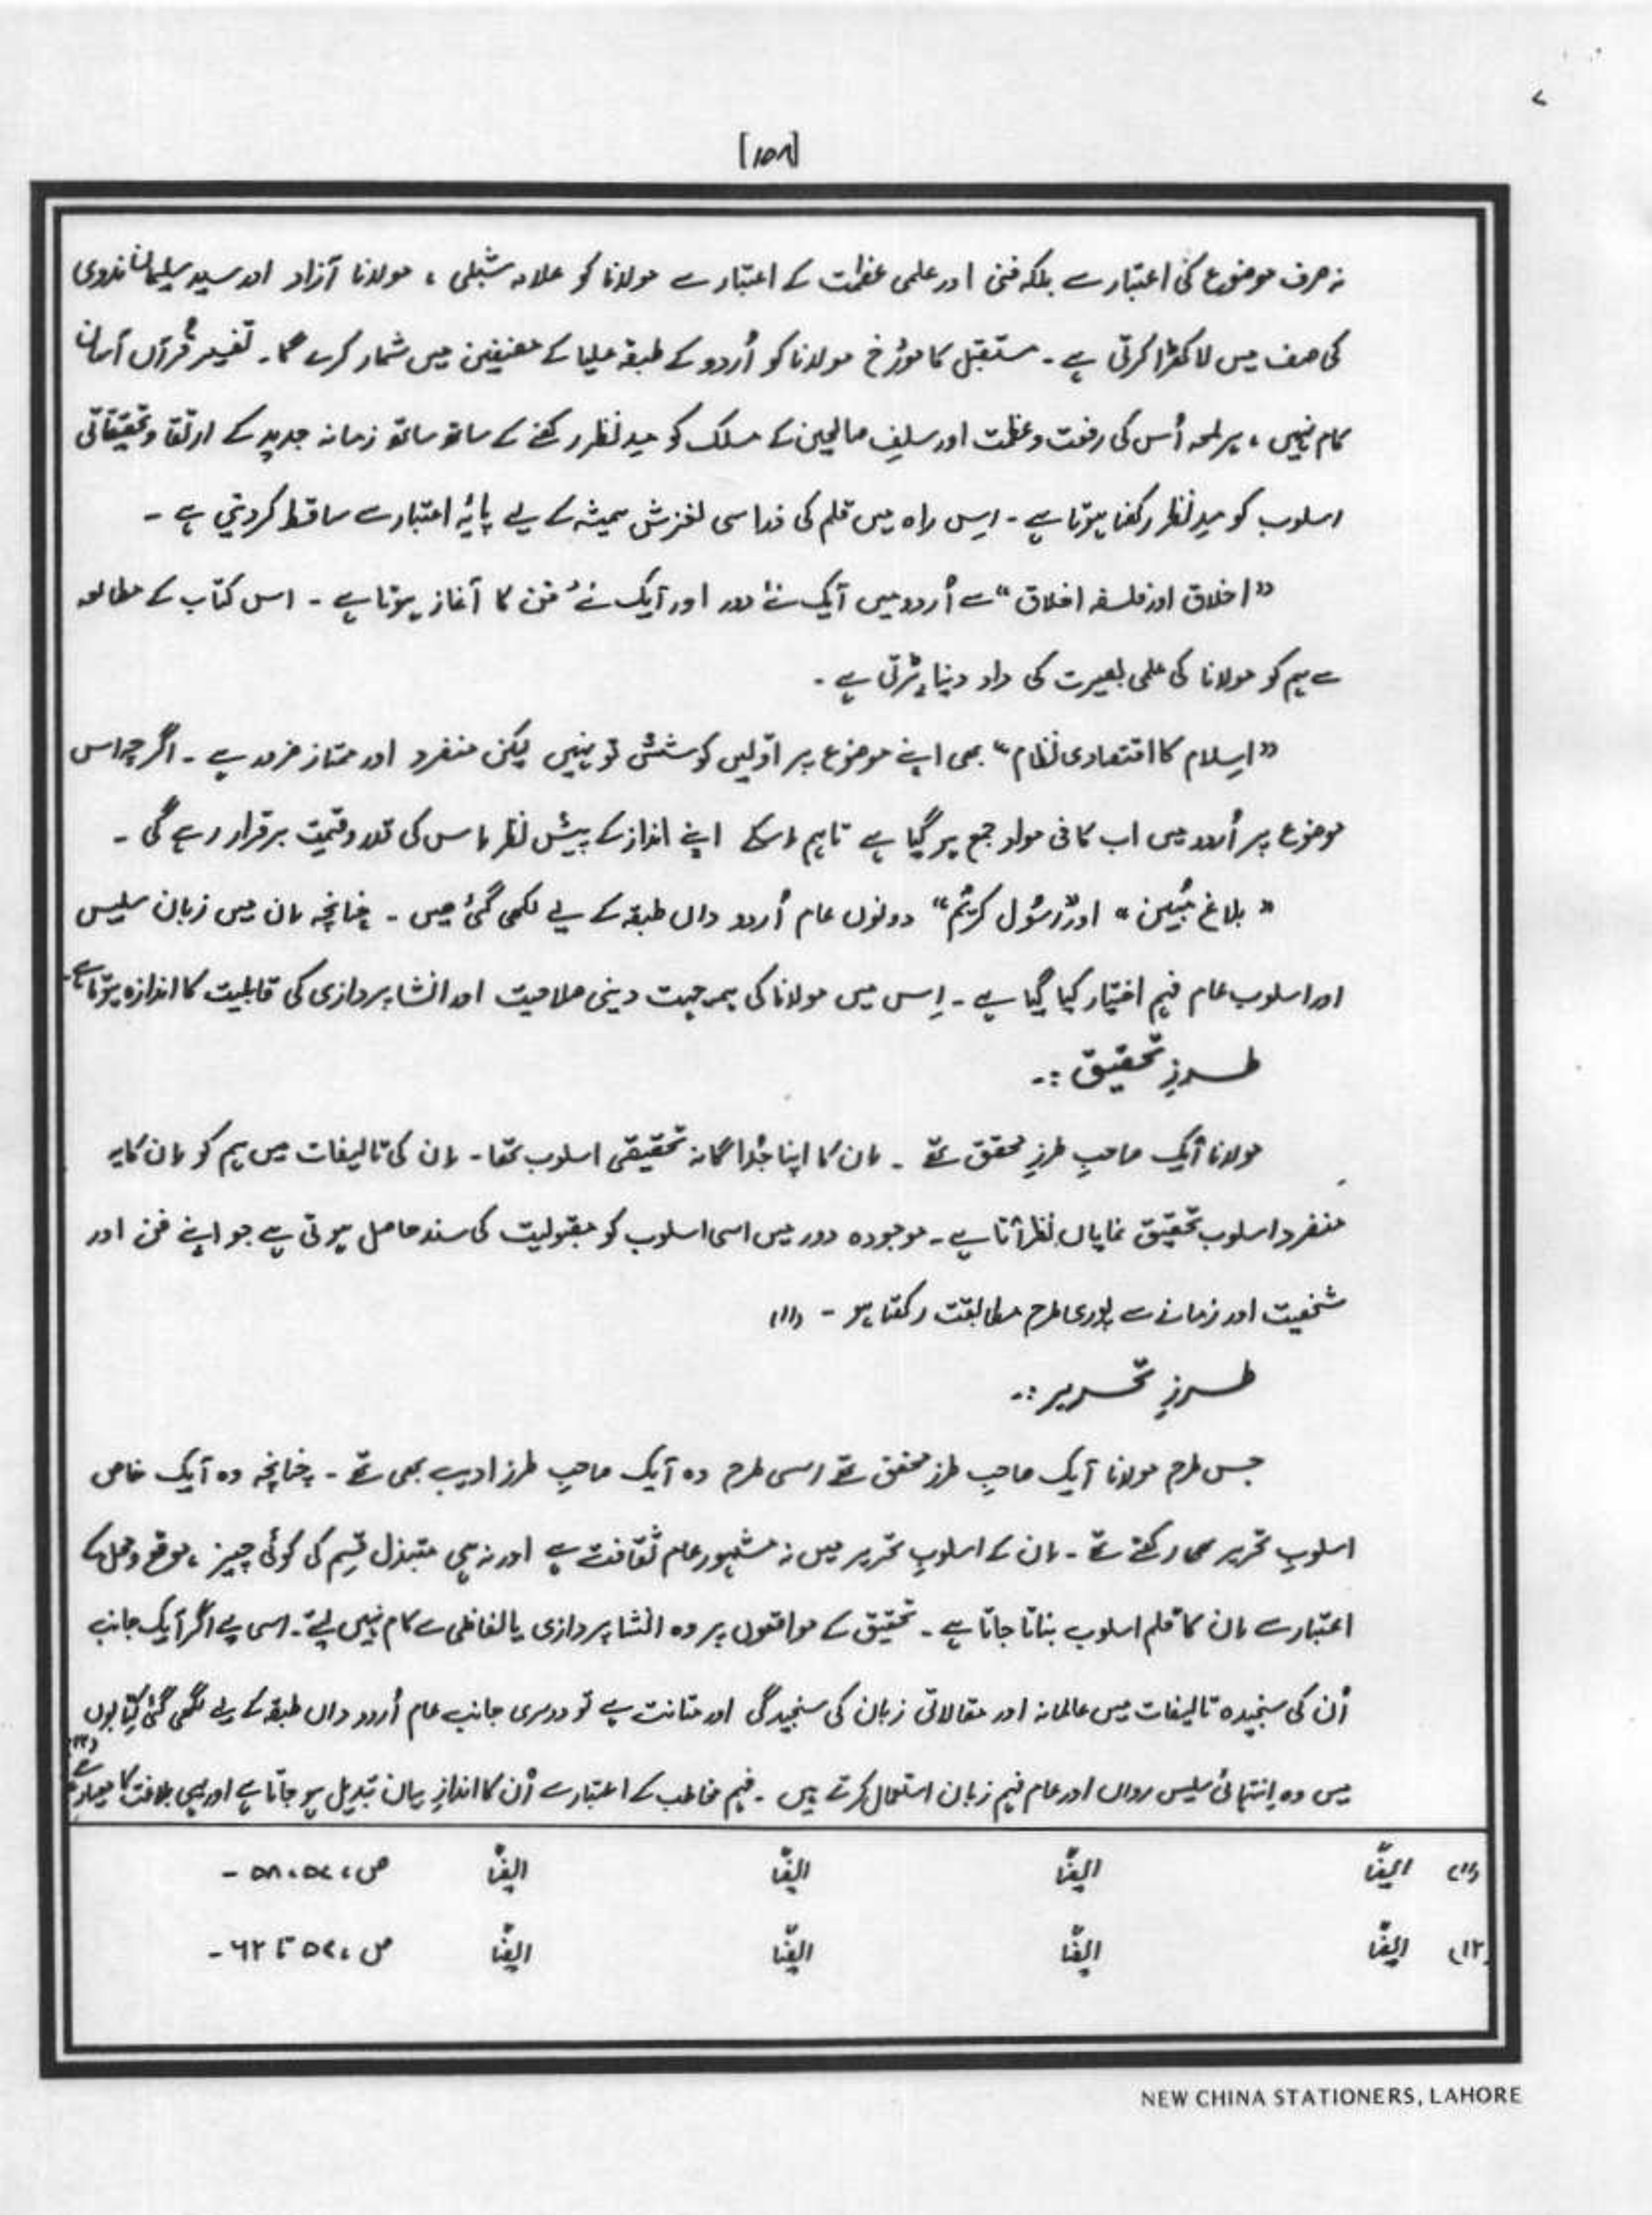 [۱۵۸]
نہ صرف موضوع کی اعتبار سے بلکہ فنی اور علمی عظمت کے اعتبار سے مولانا کو علامہ شبلی ، مولانا آزاد اور سید سلیمان ندوی
کی صف میں لا کھڑا کرتی ہے ۔ مستقبل کا مورٔخ مولانا کو اُردو کے طبقہ علیا کے مصنفین میں شمار کرے گا ۔ تفسیر قرآن آسان
کام نہیں ، ہر لمحہ اُس کی رفعت و عظمت اور سلفِ صالحین کے مسلک کو مدِ نظر رکھنے کے ساتھ ساتھ زمانہ جدید کے ارتقا و تحقیقاتی
اسلوب کو مدِ نظر رکھنا ہوتا ہے ۔ اِس راہ میں قلم کی ذرا سی لغزش ہمیشہ کے لیے پایۂ اعتبار سے ساقط کر دیتی ہے ۔
"اخلاق اور فلسفہ اخلاق" سے اُردو میں ایک نئے دور اور ایک نئے فن کا آغاز ہوتا ہے ۔ اس کتاب کے مطالعہ
سے ہم کو مولانا کی علمی بصیرت کی داد دینا پڑتی ہے ۔
"اسلام کا اقتصادی نظام" بھی اپنے موضوع پر اوّلیں کوشش تو نہیں لیکن منفرد اور ممتاز ضرور ہے ۔ اگرچہ اس
موضوع پر اُردو میں اب کافی مواد جمع ہو گیا ہے تاہم اسکے اپنے انداز کے پیش نظر اس کی قدر و قیمت برقرار رہے گی ۔
"بلاغ مُبین" اور "رسُول کریمؐ" دونوں عام اُردو داں طبقہ کے لیے لکھی گئی ہیں ۔ چنانچہ ان میں زبان سلیس
اور اسلوب عام فہم اختیار کیا گیا ہے ۔ اِس میں مولانا کی ہمہ جہت دینی صلاحیت اور انشا پردازی کی قابلیت کا اندازہ ہوتا ہے ۔
طرزِ تحقیق :۔
مولانا ایک صاحبِ طرزِ محقق تھے ۔ ان کا اپنا جُداگانہ تحقیقی اسلوب تھا ۔ ان کی تالیفات میں ہم کو ان کا یہ
منفرد اسلوب تحقیق نمایاں نظر آتا ہے ۔ موجودہ دور میں اسی اسلوب کو مقبولیت کی سند حاصل ہوتی ہے جو اپنے فن اور
شخصیت اور زمانے سے پوری طرح مطابقت رکھتا ہو ۔ (۱۱)
طرزِ تحریر :۔
جس طرح مولانا ایک صاحبِ طرز محقق تھے اسی طرح وہ ایک صاحبِ طرز ادیب بھی تھے ۔ چنانچہ وہ ایک خاص
اسلوبِ تحریر بھی رکھتے تھے ۔ ان کے اسلوبِ تحریر میں نہ مشہور عام ثقافت ہے اور نہ ہی مبتذل قسم کی کوئی چیز ، موقع و محل کے
اعتبار سے ان کا قلم اسلوب بناتا جاتا ہے ۔ تحقیق کے موقعوں پر وہ انشا پردازی یا لفاظی سے کام نہیں لیتے ۔ اسی لیے اگر ایک جانب
اُن کی سنجیدہ تالیفات میں عالمانہ اور مقالاتی زبان کی سنجیدگی اور متانت ہے تو دوسری جانب عام اُردو داں طبقہ کے لیے لکھی گئی کتابوں
میں وہ اِنتہائی سلیس رواں اور عام فہم زبان استعمال کرتے ہیں ۔ فہم مخاطب کے اعتبار سے اُن کا اندازِ بیان تبدیل ہو جاتا ہے اور یہی بلاغت کا معیار ہے (۱۲)
(۱۱) ایضًا ایضًا ایضًا ایضًا ص ، ۵۷ ، ۵۸ ۔
(۱۲) ایضًا ایضًا ایضًا ایضًا ص ، ۵۷ تا ۶۲ ۔
NEW CHINA STATIONERS, LAHORE